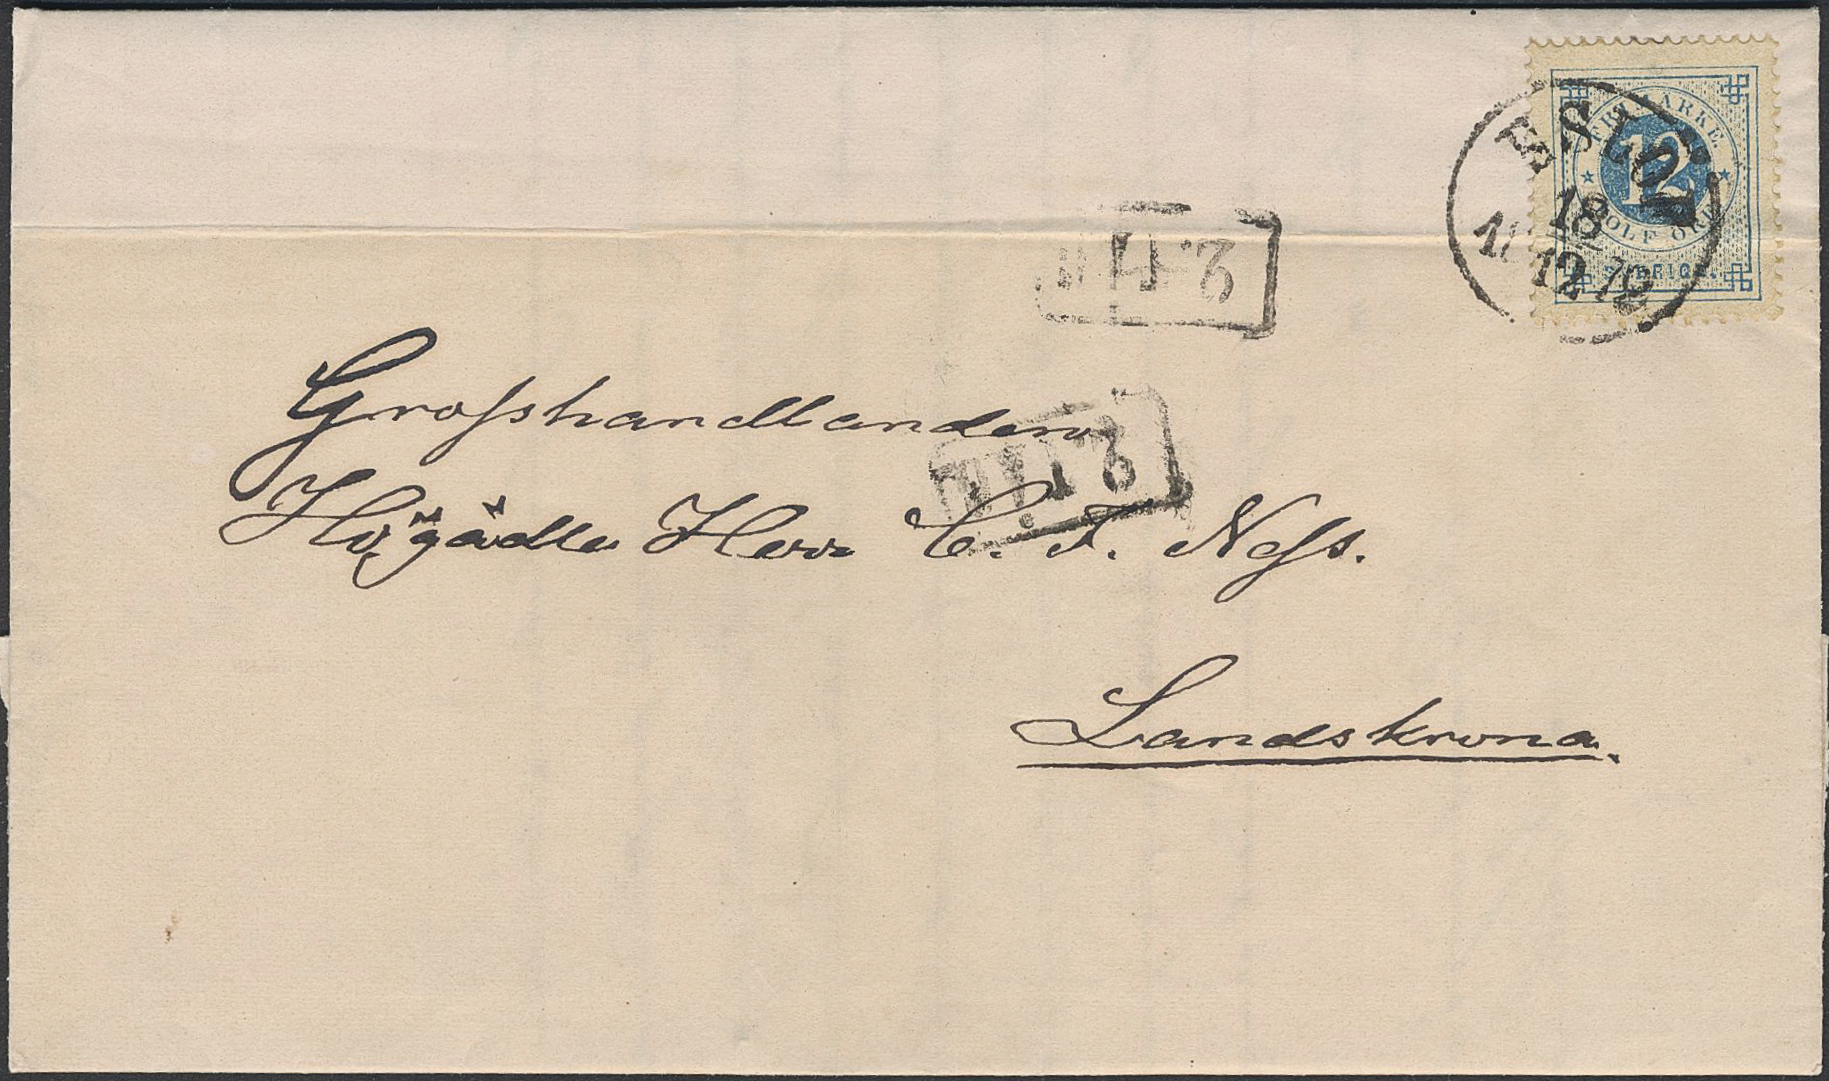 FRIMÄRKE
12
TOLF ÖRE
SVERIGE.
ESLÖF
18
12
Grosshandlanden
Högädle Herr C. F. Ness.
Landskrona.